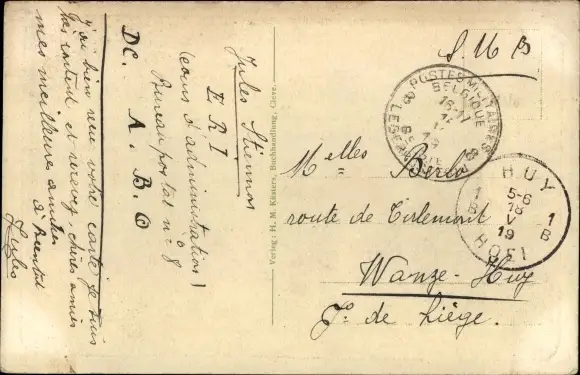 J'ai bien reçu votre carte je suis
très content et recevez, chères amies
mes meilleures amitiés
à bientôt
Jules
DC. A. B. C
Jules Stiennon
E R I
(cours d'administration)
Bureau postal n° 8
Verlag: H. M. Küsters, Buchhandlung, Cleve.
S. M. B
POSTES MILITAIRES
BELGIQUE
8
Melles Berlo
route de Tirlemont
Wanze-Huy
Pce de Liège.
HUY
5-6
1 18 1
B V B
19
HOEI